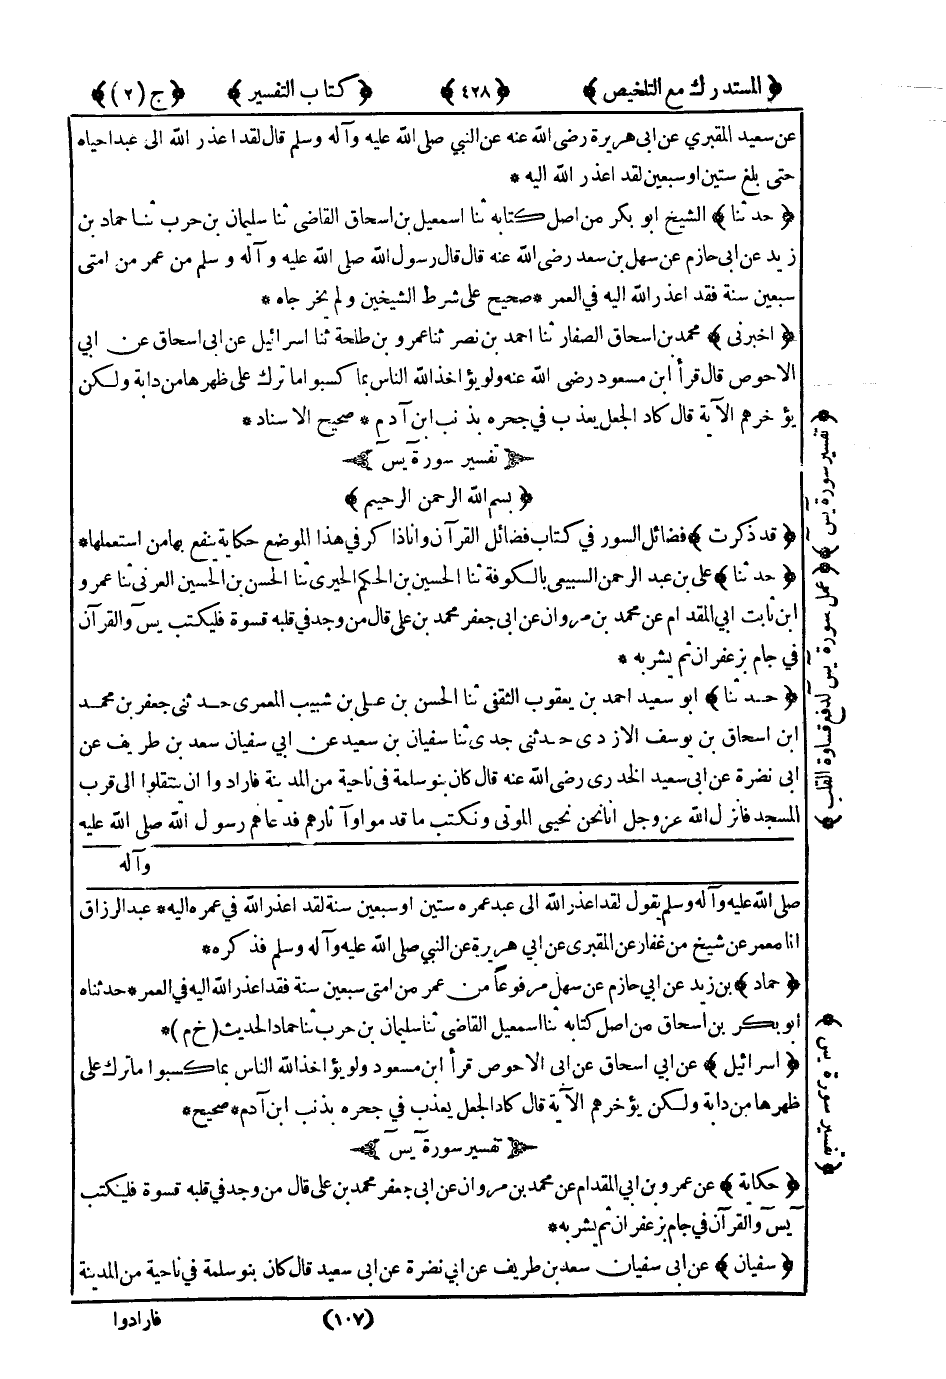 ﴿ المستدرك مع التلخيص ﴾ ﴿ ٤٢٨ ﴾ ﴿ كتاب التفسير ﴾ ﴿ ج (٢) ﴾
عن سعيد المقبري عن ابى هريرة رضى الله عنه عن النبي صلى الله عليه وآله وسلم قال لقد اعذر الله الى عبد احياه
حتى بلغ ستين او سبعين لقد اعذر الله اليه *
﴿ حدثنا ﴾ الشيخ ابو بكر من اصل كتابه ثنا اسمعيل بن اسحاق القاضي ثنا سليمان بن حرب ثنا حماد بن
زيد عن ابى حازم عن سهل بن سعد رضى الله عنه قال قال رسول الله صلى الله عليه وآله وسلم من عمر من امتى
سبعين سنة فقد اعذر الله اليه في العمر * صحيح على شرط الشيخين ولم يخرجاه *
﴿ اخبرنى ﴾ محمد بن اسحاق الصفار ثنا احمد بن نصر ثنا عمرو بن طلحة ثنا اسرائيل عن ابى اسحاق عن ابي
الاحوص قال قرأ ابن مسعود رضى الله عنه ولو يؤاخذ الله الناس بما كسبوا ما ترك على ظهرها من دابة ولكن
يؤخرهم الآية قال كاد الجعل يعذب في جحره بذنب ابن آدم * صحيح الاسناد *
﴿ تفسير سورة يس ﴾
﴿ بسم الله الرحمن الرحيم ﴾
﴿ قد ذكرت ﴾ فضائل السور في كتاب فضائل القرآن وانا ذاكر في هذا الموضع حكاية ينفع بها من استعملها *
﴿ حدثنا ﴾ على بن عبد الرحمن السبيعى بالكوفة ثنا الحسين بن الحكم الحيرى ثنا الحسن بن الحسين العرنى ثنا عمرو
ابن ثابت ابي المقدام عن محمد بن مروان عن ابى جعفر محمد بن على قال من وجد في قلبه قسوة فليكتب يس والقرآن
في جام بزعفران ثم يشربه *
﴿ حدثنا ﴾ ابو سعيد احمد بن يعقوب الثقفى ثنا الحسن بن على بن شبيب المعمرى حدثنى جعفر بن محمد
ابن اسحاق بن يوسف الازدى حدثنى جدى ثنا سفيان بن سعيد عن ابي سفيان سعد بن طريف عن
ابى نضرة عن ابى سعيد الخدرى رضى الله عنه قال كان بنو سلمة في ناحية من المدينة فارادوا ان ينتقلوا الى قرب
المسجد فانزل الله عز وجل انا نحن نحيى الموتى ونكتب ما قدموا وآثارهم فدعاهم رسول الله صلى الله عليه
وآله
صلى الله عليه وآله وسلم يقول لقد اعذر الله الى عبد عمره ستين او سبعين سنة لقد اعذر الله في عمره اليه * عبد الرزاق
انا معمر عن شيخ من غفار عن المقبرى عن ابي هريرة عن النبي صلى الله عليه وآله وسلم فذكره *
﴿ حماد ﴾ بن زيد عن ابي حازم عن سهل مرفوعاً من عمر من امتى سبعين سنة فقد اعذر الله اليه في العمر * حدثناه
ابو بكر بن اسحاق من اصل كتابه ثنا اسمعيل القاضي ثنا سليمان بن حرب ثنا حماد الحديث (خ م) *
﴿ اسرائيل ﴾ عن ابي اسحاق عن ابى الاحوص قرأ ابن مسعود ولو يؤاخذ الله الناس بما كسبوا ما ترك على
ظهرها من دابة ولكن يؤخرهم الآية قال كاد الجعل يعذب في جحره بذنب ابن آدم * صحيح *
﴿ تفسير سورة يس ﴾
﴿ حكاية ﴾ عن عمرو بن ابي المقدام عن محمد بن مروان عن ابى جعفر محمد بن على قال من وجد في قلبه قسوة فليكتب
يس والقرآن في جام بزعفران ثم يشربه *
﴿ سفيان ﴾ عن ابى سفيان سعد بن طريف عن ابي نضرة عن ابى سعيد قال كان بنو سلمة في ناحية من المدينة
(١٠٧) فارادوا
﴿ تفسير سورة يس ﴾
﴿ عمل سورة يس لدفع قساوة القلب ﴾
﴿ تفسير سورة يس ﴾